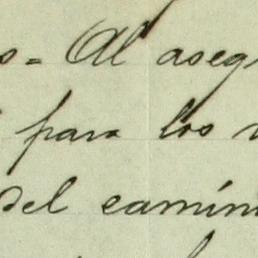 Al aseg
para los
del camin